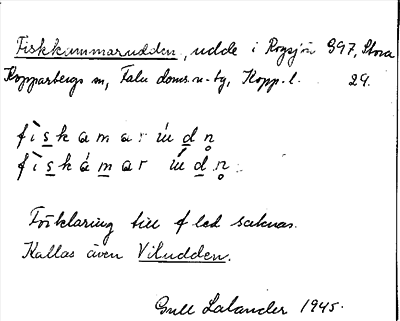 Fiskkammarudden, udde i Rogsjön 997, Stora
Kopparbergs sn, Falu doms.-tg, Kopp. l. 29.
fìskamar úddn̥
fìskámar úddn̥
Förklaring till f led saknas.
Kallas även Viludden.
Gull Lalander 1945.